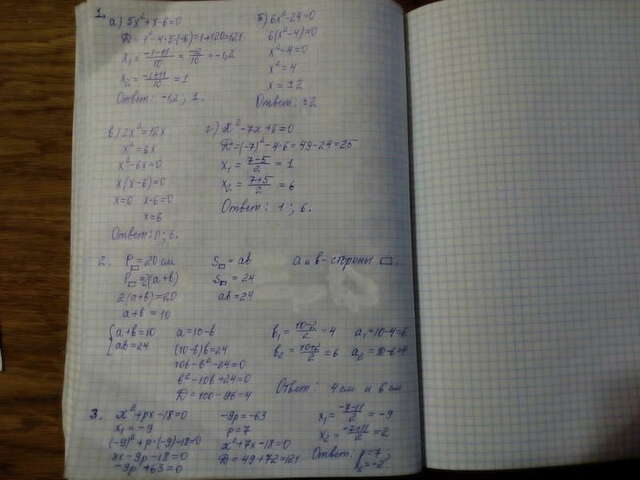 1.
а) 5x²+x-6=0
D=1²-4·5·(-6)=1+120=121
x₁=(-1-11)/10=-12/10=-1,2
x₂=(-1+11)/10=1
Ответ: -1,2; 1.
б) 6x²-24=0
6(x²-4)=0
x²-4=0
x²=4
x=±2
Ответ: ±2
в) 2x²=12x
x²=6x
x²-6x=0
x(x-6)=0
x=0 x-6=0
x=6
Ответ: 0; 6.
г) x²-7x+6=0
D=(-7)²-4·6=49-24=25
x₁=(7-5)/2=1
x₂=(7+5)/2=6
Ответ: 1; 6.
2. P▭=20 см
P▭=2(a+b)
2(a+b)=20
a+b=10
S▭=ab
S▭=24
ab=24
a и b-стороны ▭.
{a+b=10
ab=24
a=10-b
(10-b)b=24
10b-b²-24=0
b²-10b+24=0
D=100-96=4
b₁=(10-2)/2=4 a₁=10-4=6
b₂=(10+2)/2=6 a₂=10-6=4
Ответ: 4 см и 6 см
3. x²+px-18=0
x₁=-9
(-9)²+p·(-9)-18=0
81-9p-18=0
-9p+63=0
-9p=-63
p=7
x²+7x-18=0
D=49+72=121
x₁=(-7-11)/2=-9
x₂=(-7+11)/2=2
Ответ: p=7;